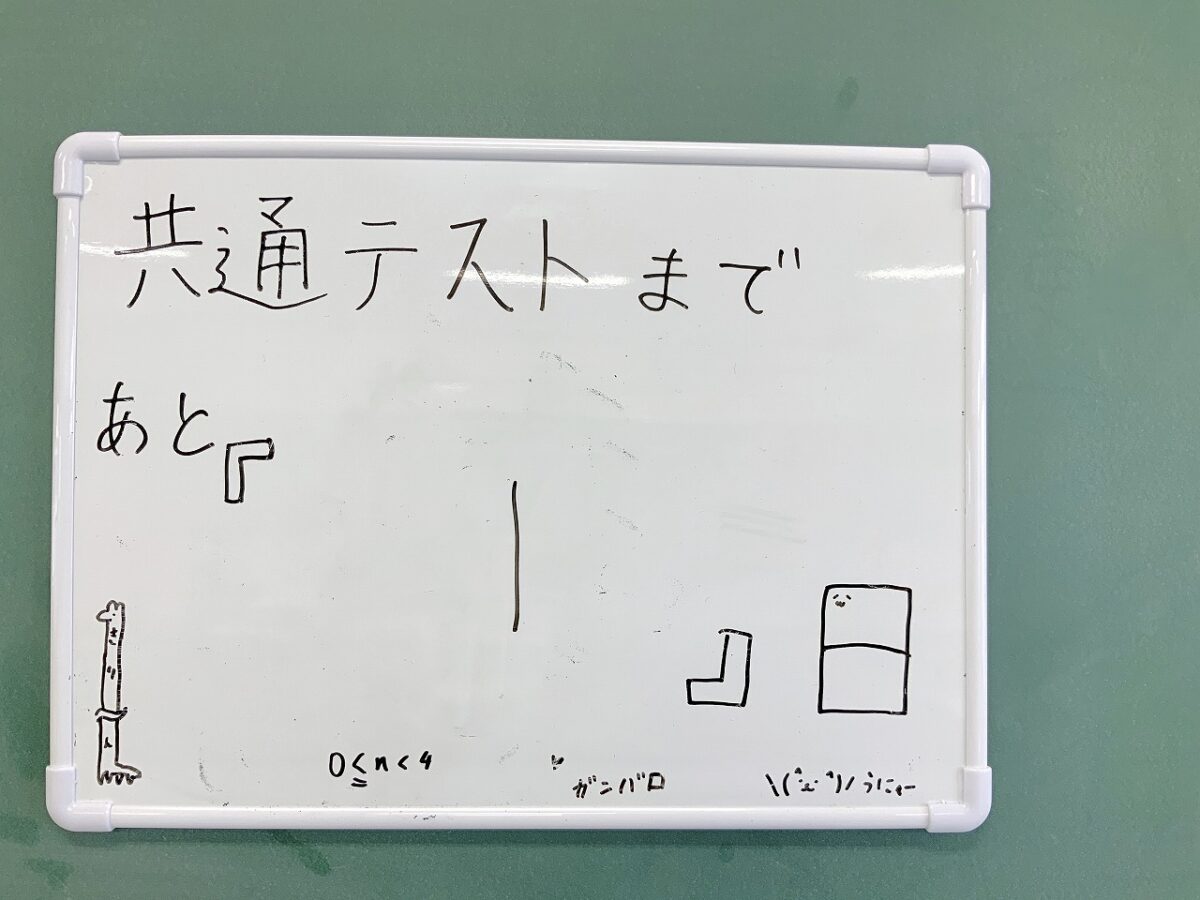 共通テストまで
あと『1』日
0≦n<4
ガンバロ
\(^ω^)/うにゃー